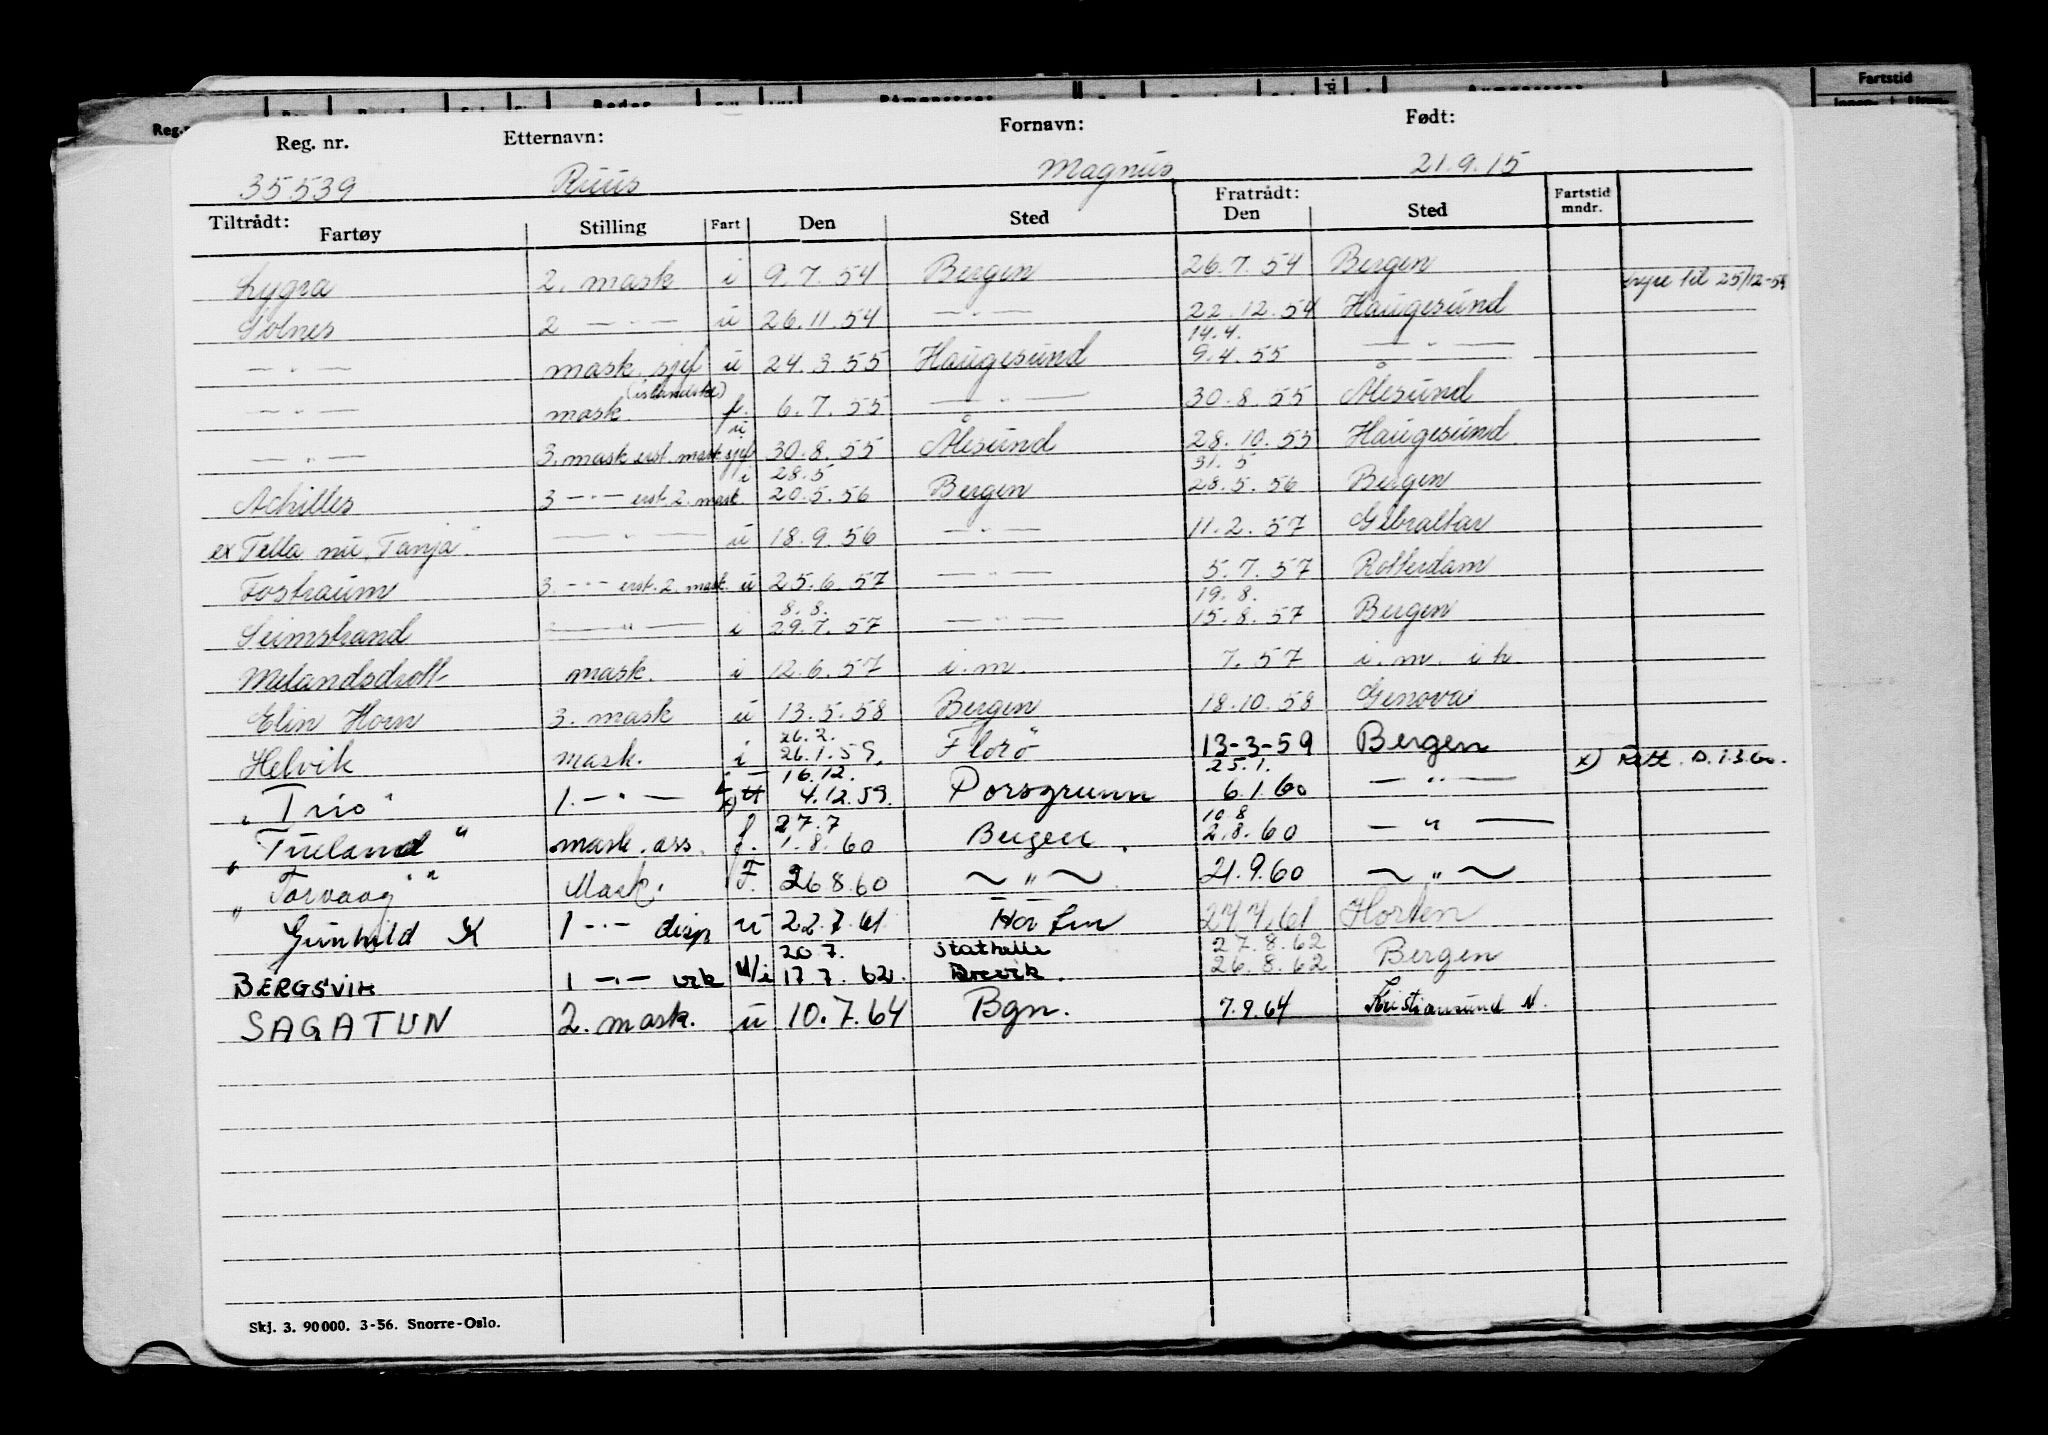 Fartstid
Reg. nr. Etternavn: Fornavn: Født:
35539 Ruus Magnus 21.9.15
Tiltrådt: Fratrådt: Fartstid mndr.
Fartøy Stilling Fart Den Sted Den Sted
Lygra 2. mask i 9.7.54 Bergen 26.7.54 Bergen
til 25/12-54
Solnes 2 —"— u 26.11.54 —"— 22.12.54 Haugesund
14.4.
—"— mask. sjef u 24.3.55 Haugesund 9.4.55 —"—
(islandske)
—"— mask f. 6.7.55 —"— 30.8.55 Ålesund
—"— 3. mask erst. mask sjef u 30.8.55 Ålesund 28.10.55 Haugesund
28.5 31.5
Achilles 3 —"— erst. 2. mask. i 20.5.56 Bergen 28.5.56 Bergen
ex Tella nu "Tanja" —"— u 18.9.56 —"— 11.2.57 Gibraltar
Fostraum 3. —"— erst. 2. mask. u 25.6.57 —"— 5.7.57 Rotterdam
8.8. 19.8.
Seimstrand —"— i 29.7.57 —"— 15.8.57 Bergen
Melandsdrott mask. i 12.6.57 i.m. 7.57 i.m. i h.
Elin Horn 3. mask u 13.5.58 Bergen 18.10.58 Genova
26.2.
Helvik mask. i 26.1.59. Florö 13-3-59 Bergen
16.12. 25.1.
"Trio" 1. —"— x) 4.12.59. Porsgrunn 6.1.60 —"— x) Rett. D. 1.3.60.
27.7 10.8
mask. ass. f. 1.8.60 Bergen. 2.8.60 —"—
"Torvaag" Mask. F. 26.8.60 —"— 21.9.60 —"—
Gunhild K 1 —"— disp u 22.7.61 27.7.61 Horten
20.7. Stathelle 27.8.62
BERGSVIK 1 —"— vik u/i 17.7.62. Brevik. 26.8.62 Bergen
SAGATUN 2. mask. u 10.7.64 Bgn. 7.9.64 Kristiansund N.
Skj. 3. 90000. 3-56. Snorre-Oslo.